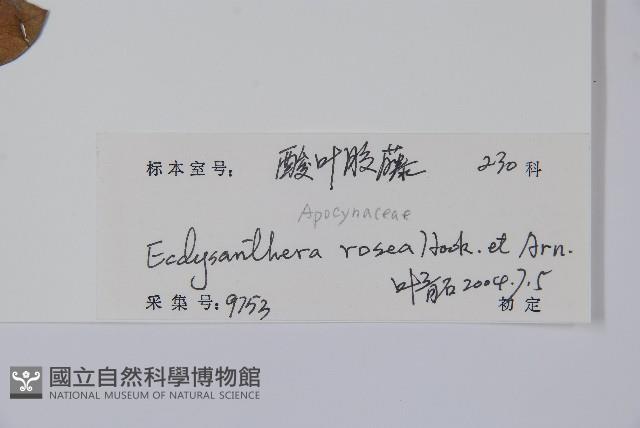 标本室号: 酸叶胶藤 230 科
Apocynaceae
Ecdysanthera rosea Hook. et Arn.
叶育石 2004.7.5
采集号: 9753 初定
國立自然科學博物館
NATIONAL MUSEUM OF NATURAL SCIENCE